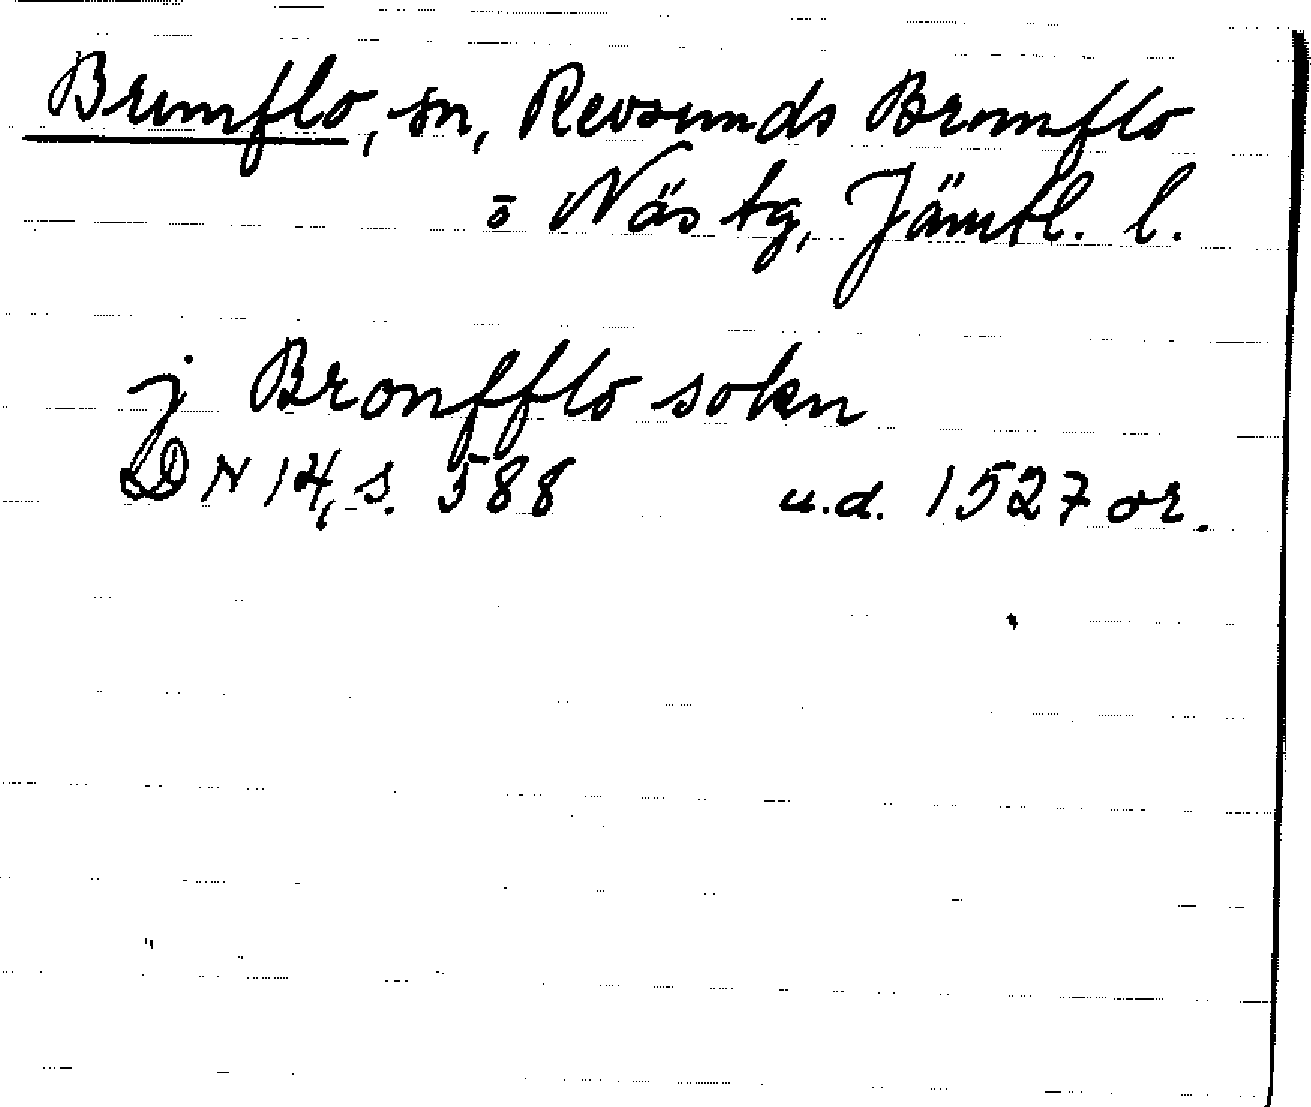 Brunflo, sn, Revsunds Brunflo
o Näs tg, Jämtl. l.
j Bronfflo sokn
DN 14, s. 588 u.d. 1527 or.